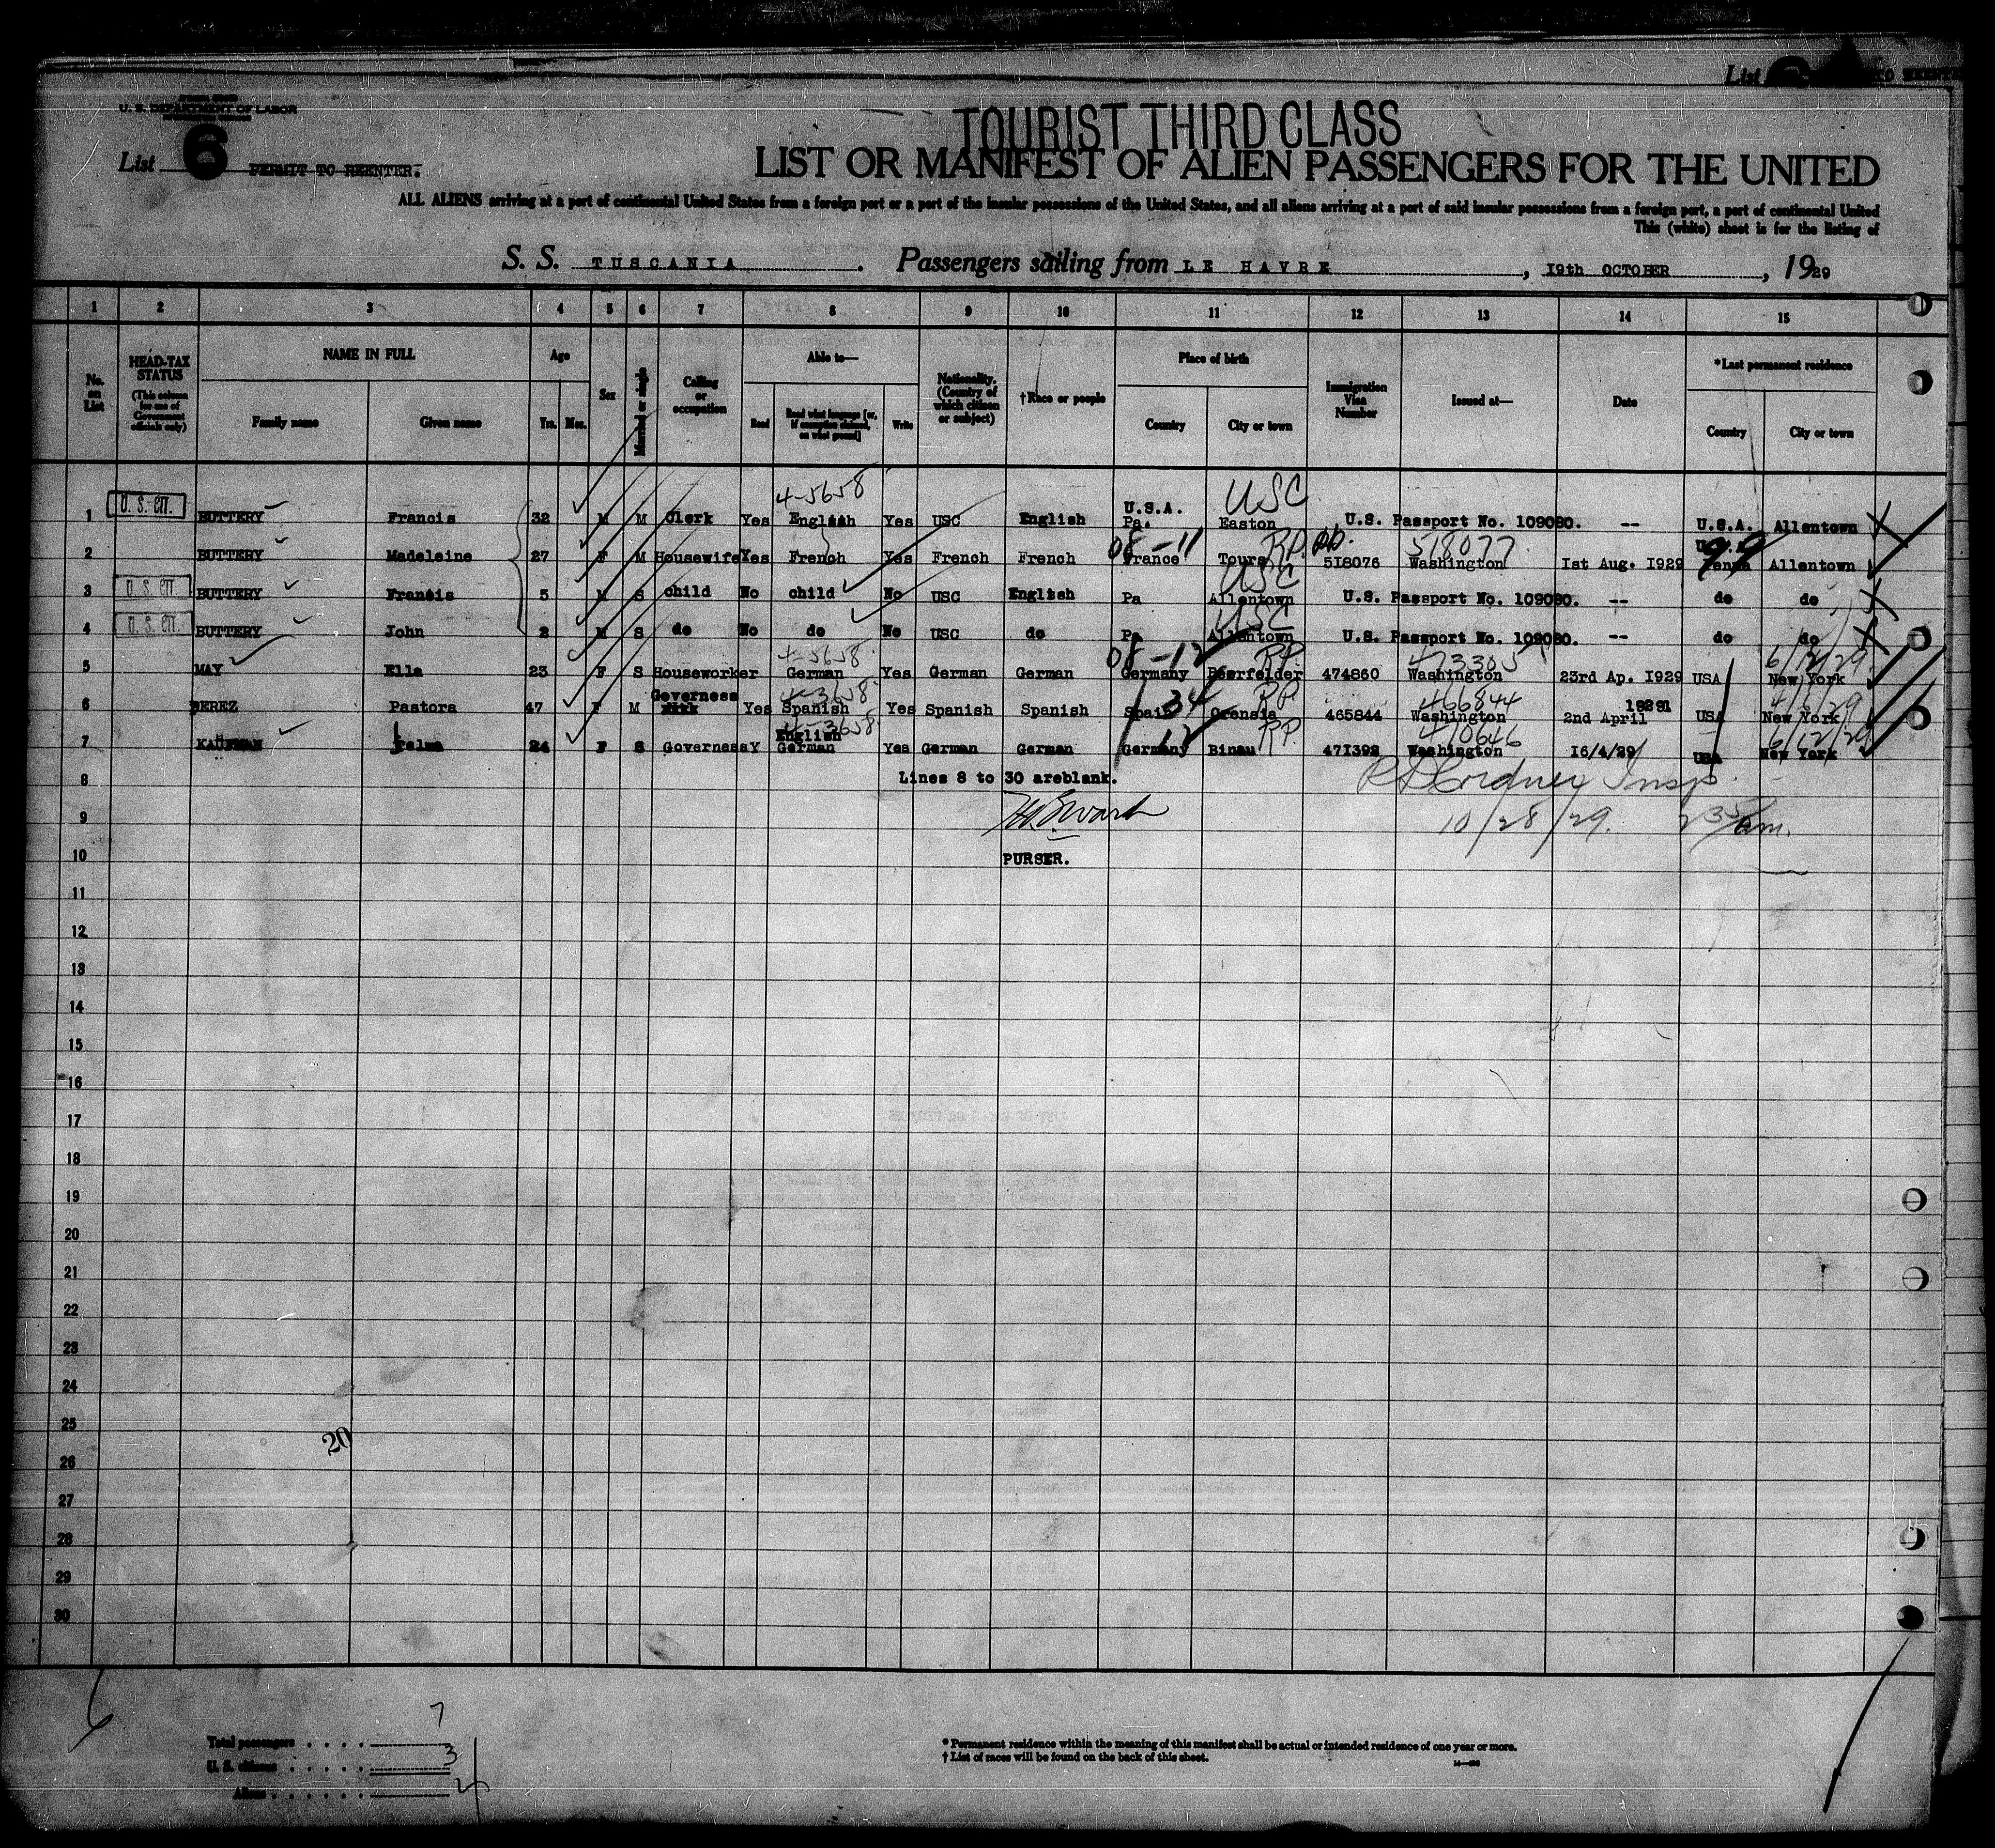 List 6
U. S. DEPARTMENT OF LABOR
TOURIST THIRD CLASS
List 6 PERMIT TO REENTER.
LIST OR MANIFEST OF ALIEN PASSENGERS FOR THE UNITED
ALL ALIENS arriving at a port of continental United States from a foreign port or a port of the insular possessions of the United States, and all aliens arriving at a port of said insular possessions from a foreign port, a port of continental United
This (white) sheet is for the listing of
S. S. TUSCANIA. Passengers sailing from LE HAVRE, 19th OCTOBER, 1929
1 2 3 4 5 6 7 8 9 10 11 12 13 14 15
No. on List
HEAD-TAX STATUS (This column for use of Government officials only)
NAME IN FULL Family name Given name
Age Yrs. Mos.
Sex
Married or single
Calling or occupation
Able to— Read Read what language [or, if exemption claimed, on what ground] Write
Nationality. (Country of which citizen or subject)
†Race or people
Place of birth Country City or town
Immigration Visa Number
Issued at—
Date
*Last permanent residence Country City or town
4-5658 USC
1 U. S. CIT. BUTTERY Francis 32 M M Clerk Yes English Yes USC English U.S.A. Pa. Easton U.S. Passport No. 109080. -- U.S.A. Allentown X
08-11 RP. 518077
2 BUTTERY Madeleine 27 F M Housewife Yes French Yes French French France Tours 518076 Washington 1st Aug. 1929 Penna Allentown
USC
3 U. S. CIT. BUTTERY Francis 5 M S child No child No USC English Pa Allentown U.S. Passport No. 109080. -- do do X
USC
4 U. S. CIT. BUTTERY John 2 M S do No do No USC do Pa Allentown U.S. Passport No. 109080. -- do do X
4-5658 08-12 RP. 473305 6/12/29
5 MAY Ella 23 F S Houseworker German Yes German German Germany Beerfelder 474860 Washington 23rd Ap. 1929 USA New York
4-3658 34 RP 466844
6 PEREZ Pastora 47 F M Governess Yes Spanish Yes Spanish Spanish Spain Orensia 465844 Washington 2nd April USA New York
4-3658 12 RP. 470646 6/12/29
7 KAUFMAN Selma 24 F S Governess Y English German Yes German German Germany Binau 471392 Washington 16/4/29 USA New York
8 Lines 8 to 30 areblank.
9 10/28/29. am.
10 PURSER.
11
12
13
14
15
16
17
18
19
20
21
22
23
24
25
20
26
27
28
29
30
Total passengers . . . . 7
U. S. citizens . . . . . 3
Aliens . . . . . . 4
* Permanent residence within the meaning of this manifest shall be actual or intended residence of one year or more.
† List of races will be found on the back of this sheet.